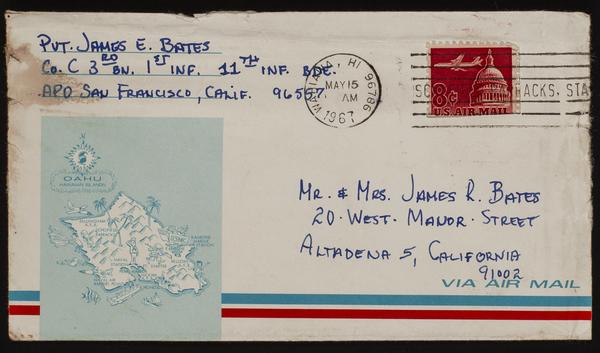 Pvt. James E. Bates
Co. C 3RD Bn. 1ST Inf. 11TH Inf. Bde.
APO San Francisco, Calif. 96557
WAHIAWA, HI 96786
MAY 15
AM
1967
8¢
U.S. AIR MAIL
ACKS, STA
OAHU
HAWAIIAN ISLANDS
Mr. & Mrs. James R. Bates
20 · West · Manor · Street
Altadena 5, California
91002
VIA AIR MAIL